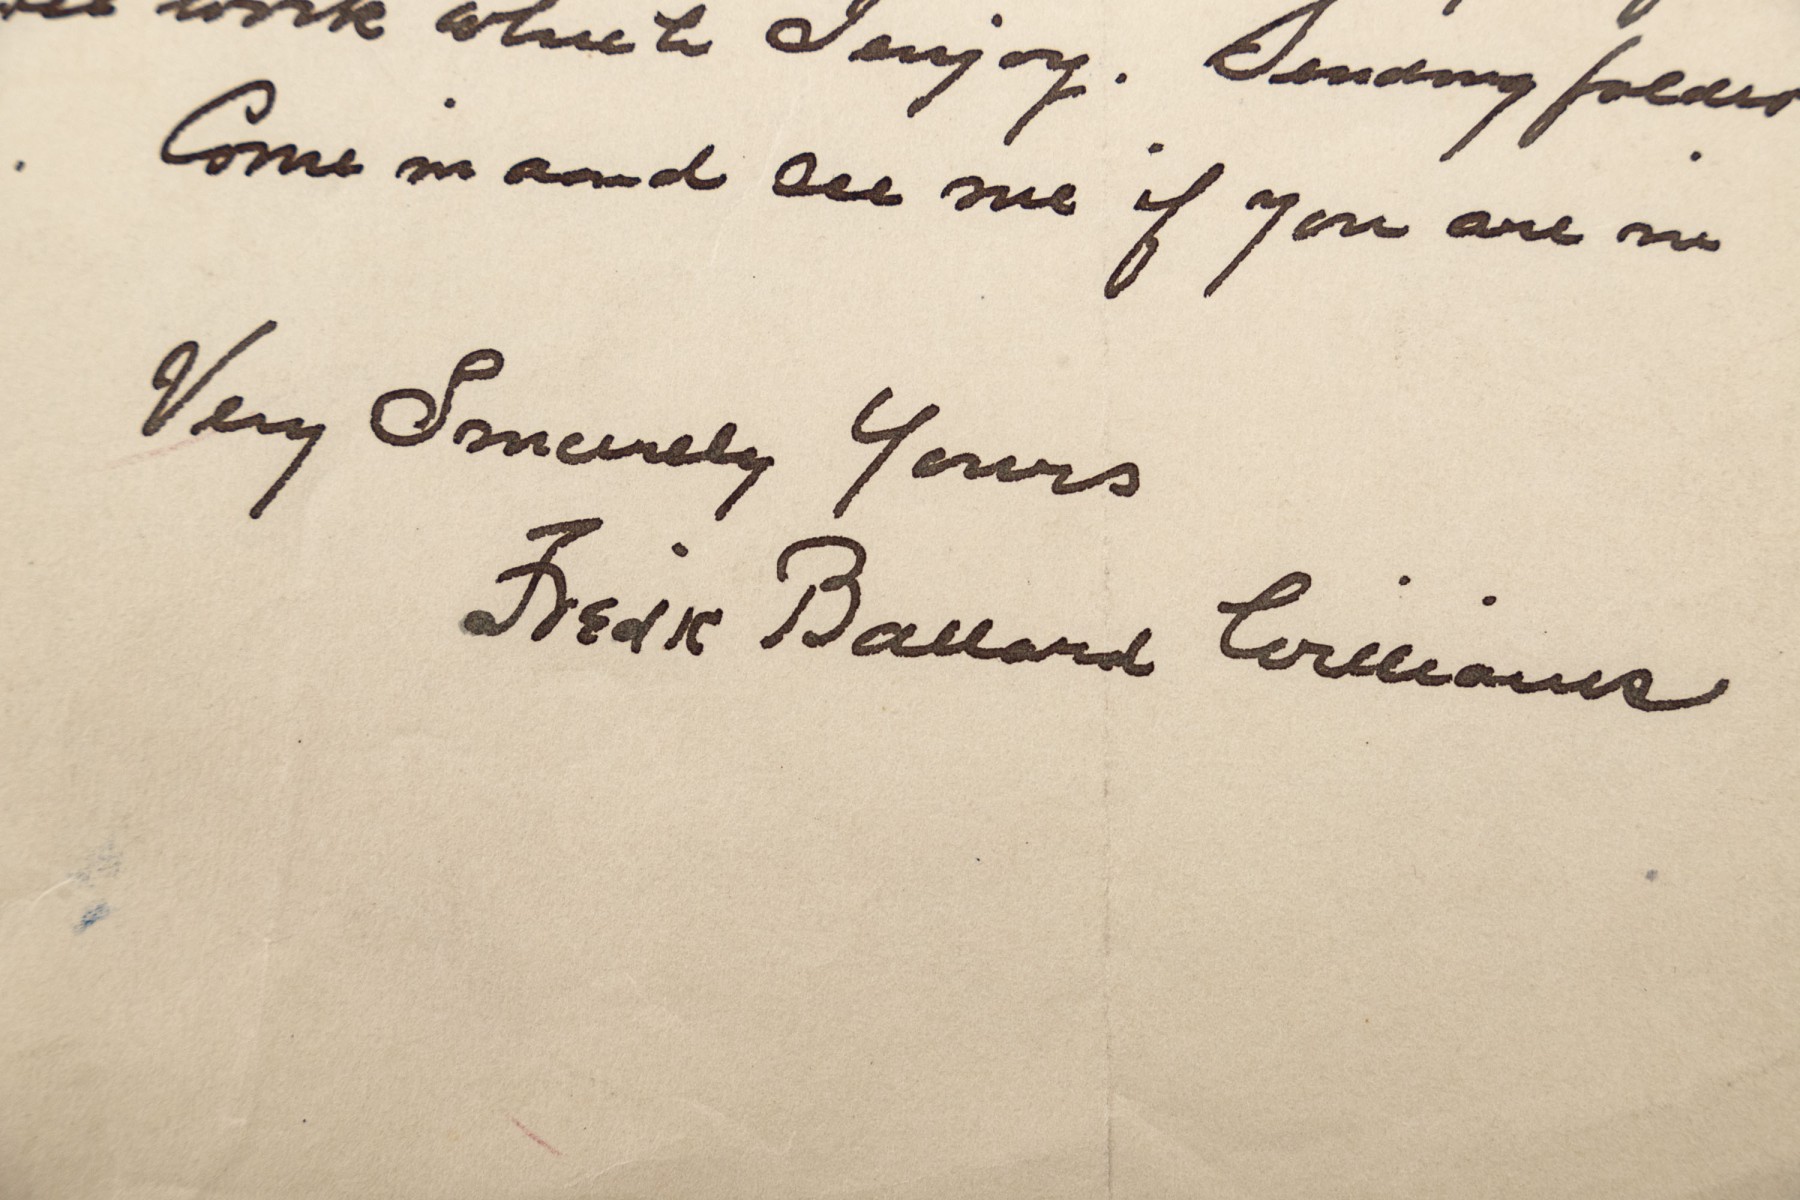 work which I enjoy. Sending folder
Come in and see me if you are in
Very Sincerely Yours
Fredk Ballard Williams